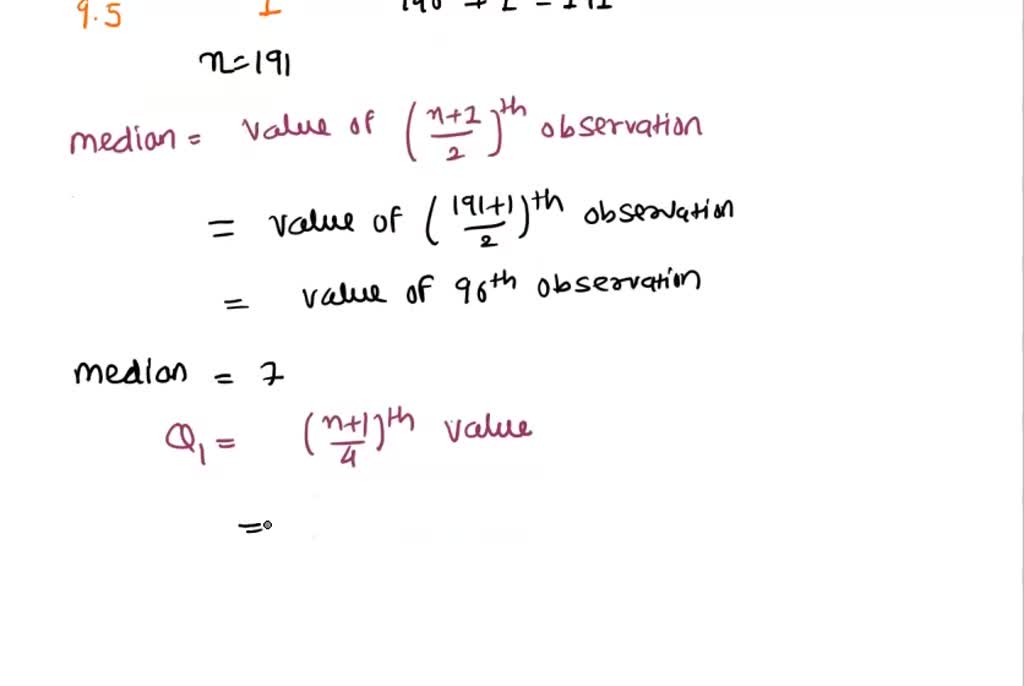 9.5 1 190 + 1 = 191
n=191
median = value of (n+1/2)th observation
= value of (191+1/2)th observation
= value of 96th observation
median = 7
Q1 = (n+1/4)th value
=